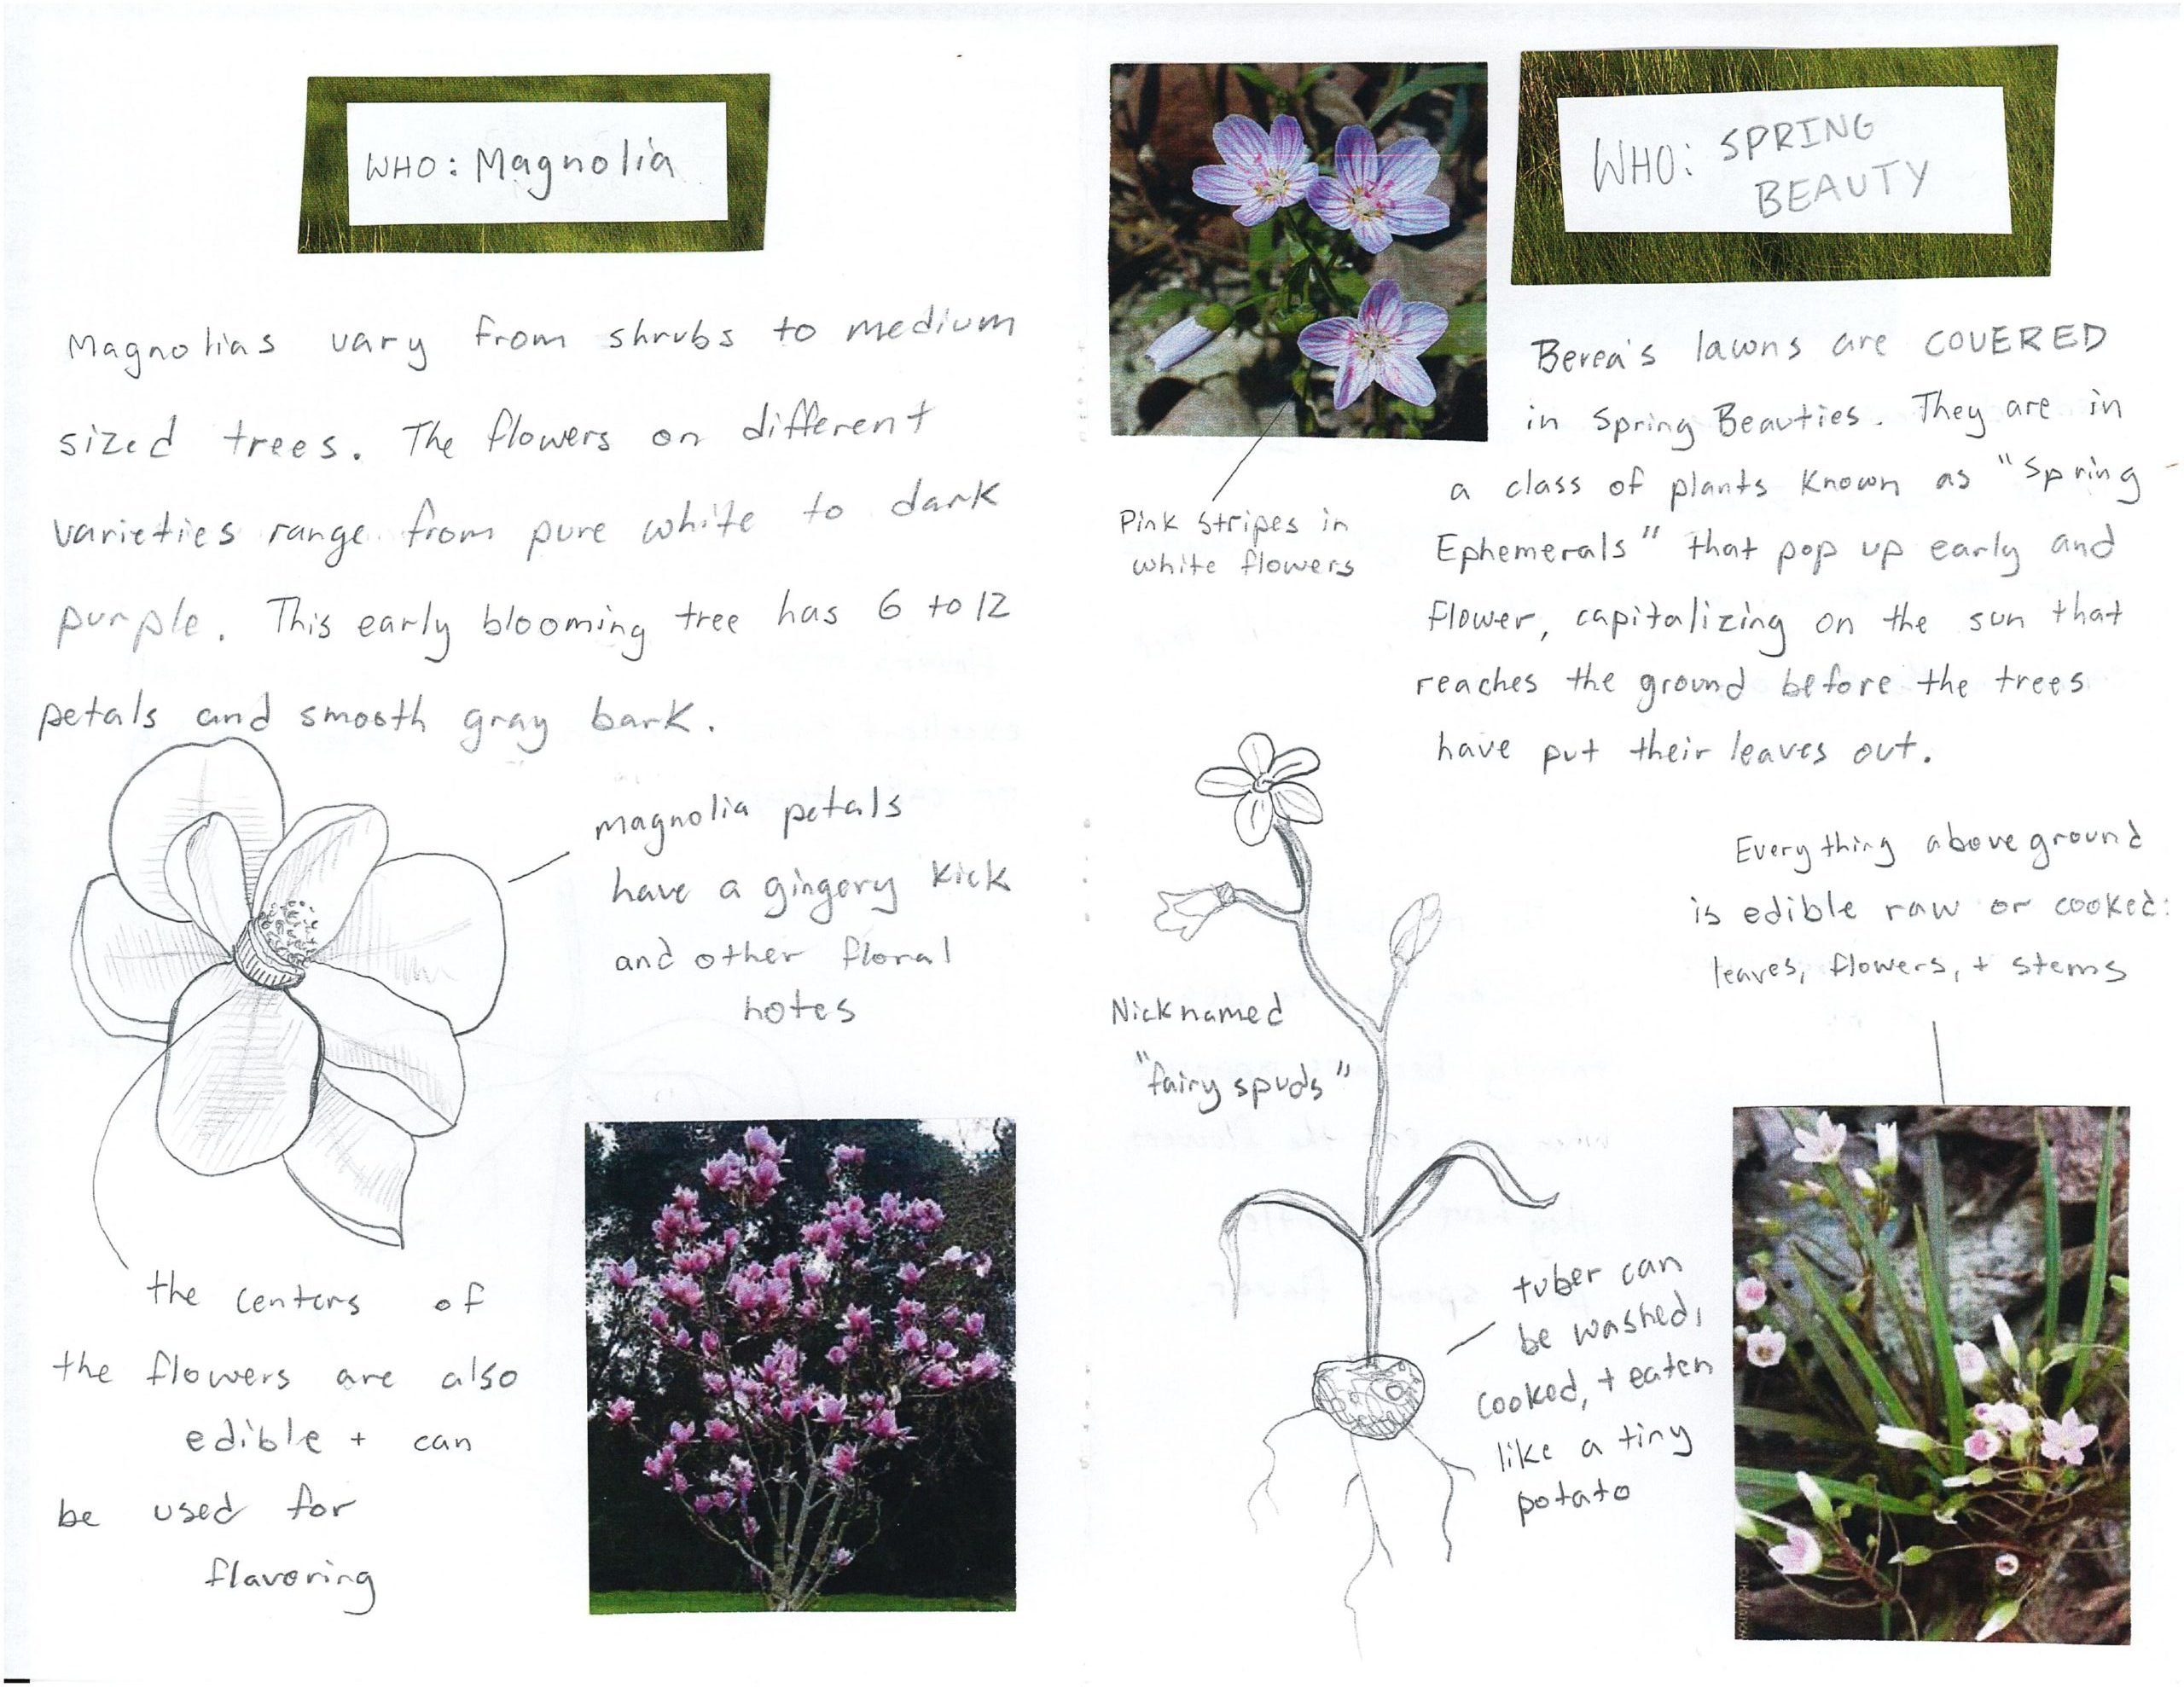 WHO: Magnolia
Magnolias vary from shrubs to medium
sized trees. The flowers on different
varieties range from pure white to dark
purple. This early blooming tree has 6 to 12
petals and smooth gray bark.
magnolia petals
have a gingery kick
and other floral
notes
the centers of
the flowers are also
edible + can
be used for
flavoring
WHO: SPRING
BEAUTY
Berea's lawns are COVERED
in Spring Beauties. They are in
a class of plants known as "Spring
Ephemerals" that pop up early and
flower, capitalizing on the sun that
reaches the ground before the trees
have put their leaves out.
Pink stripes in
white flowers
Everything above ground
is edible raw or cooked:
leaves, flowers, + stems
Nicknamed
"fairy spuds"
tuber can
be washed,
cooked, + eaten
like a tiny
potato